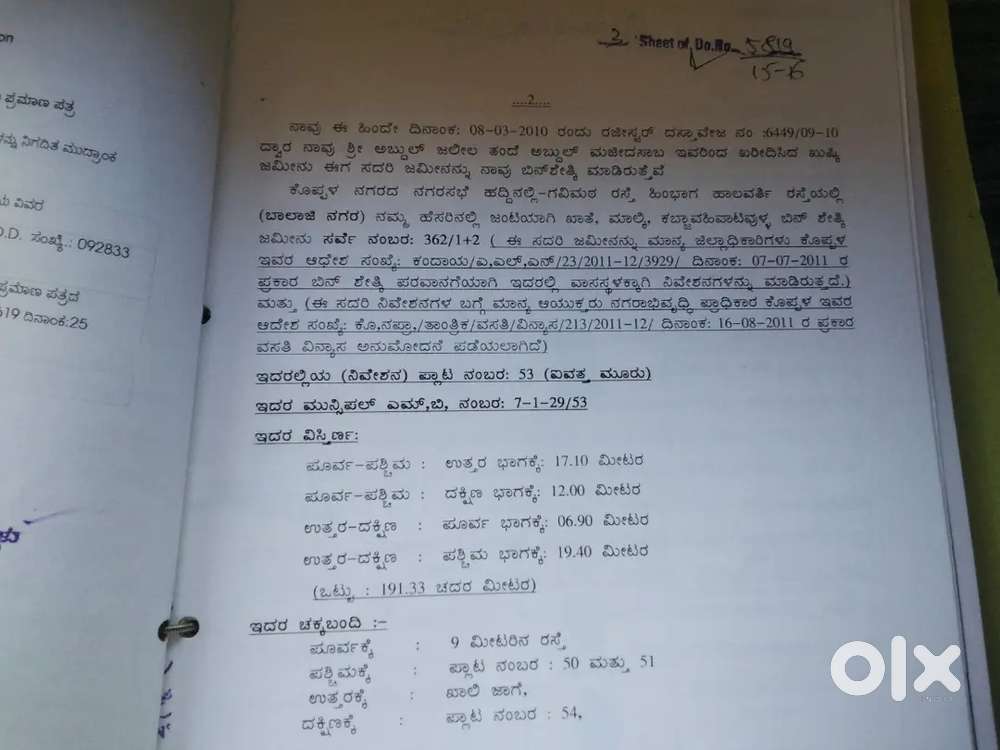 on
ಪ್ರಮಾಣ ಪತ್ರ
ನಿಗದಿತ ಮುದ್ರಾಂಕ
ವಿವರ
D.D. ಸಂಖ್ಯೆ.: 092833
ಪ್ರಮಾಣ ಪತ್ರದ
619 ದಿನಾಂಕ:25
2 Sheet of Do.No. 5819
15-16
....2....
ನಾವು ಈ ಹಿಂದೇ ದಿನಾಂಕ: 08-03-2010 ರಂದು ರಜೀಸ್ಟರ್ ದಸ್ತಾವೇಜ ನಂ :6449/09-10
ದ್ವಾರ ನಾವು ಶ್ರೀ ಅಬ್ದುಲ್ ಜಲೀಲ ತಂದೆ ಅಬ್ದುಲ್ ಮಜೀದಸಾಬ ಇವರಿಂದ ಖರೀದಿಸಿದ ಖುಷ್ಕಿ
ಜಮೀನು ಈಗ ಸದರಿ ಜಮೀನನ್ನು ನಾವು ಬಿನ್‌ಶೇತ್ಕಿ ಮಾಡಿರುತ್ತೆವೆ
ಕೊಪ್ಪಳ ನಗರದ ನಗರಸಭೆ ಹದ್ದಿನಲ್ಲಿ-ಗವಿಮಠ ರಸ್ತೆ ಹಿಂಭಾಗ ಹಾಲವರ್ತಿ ರಸ್ತೆಯಲ್ಲಿ
(ಬಾಲಾಜಿ ನಗರ) ನಮ್ಮ ಹೆಸರಿನಲ್ಲಿ ಜಂಟಿಯಾಗಿ ಖಾತೆ, ಮಾಲ್ಕಿ, ಕಬ್ಜಾವಹಿವಾಟವುಳ್ಳ ಬಿನ್ ಶೇತ್ಕಿ
ಜಮೀನು ಸರ್ವೆ ನಂಬರ: 362/1+2 ( ಈ ಸದರಿ ಜಮೀನನ್ನು ಮಾನ್ಯ ಜಿಲ್ಲಾಧಿಕಾರಿಗಳು ಕೊಪ್ಪಳ
ಇವರ ಆಧೇಶ ಸಂಖ್ಯೆ: ಕಂದಾಯ/ಎ,ಎಲ್,ಎನ್/23/2011-12/3929/ ದಿನಾಂಕ: 07-07-2011 ರ
ಪ್ರಕಾರ ಬಿನ್ ಶೇತ್ಕಿ ಪರವಾನಗೆಯಾಗಿ ಇದರಲ್ಲಿ ವಾಸಸ್ಥಳಕ್ಕಾಗಿ ನಿವೇಶನಗಳನ್ನು ಮಾಡಿರುತ್ತದೆ.)
ಮತ್ತು (ಈ ಸದರಿ ನಿವೇಶನಗಳ ಬಗ್ಗೆ ಮಾನ್ಯ ಆಯುಕ್ತರು ನಗರಾಭಿವೃದ್ಧಿ ಪ್ರಾಧಿಕಾರ ಕೊಪ್ಪಳ ಇವರ
ಆದೇಶ ಸಂಖ್ಯೆ: ಕೊ,ನಪ್ರಾ,/ತಾಂತ್ರಿಕ/ವಸತಿ/ವಿನ್ಯಾಸ/213/2011-12/ ದಿನಾಂಕ: 16-08-2011 ರ ಪ್ರಕಾರ
ವಸತಿ ವಿನ್ಯಾಸ ಅನುಮೋದನೆ ಪಡೆಯಲಾಗಿದೆ)
ಇದರಲ್ಲಿಯ (ನಿವೇಶನ) ಪ್ಲಾಟ ನಂಬರ: 53 (ಐವತ್ತ ಮೂರು)
ಇದರ ಮುನ್ಸಿಪಲ್ ಎಮ್,ಬಿ, ನಂಬರ: 7-1-29/53
ಇದರ ವಿಸ್ತಿರ್ಣ:
ಪೂರ್ವ-ಪಶ್ಚಿಮ : ಉತ್ತರ ಭಾಗಕ್ಕೆ: 17.10 ಮೀಟರ
ಪೂರ್ವ-ಪಶ್ಚಿಮ : ದಕ್ಷಿಣ ಭಾಗಕ್ಕೆ: 12.00 ಮೀಟರ
ಉತ್ತರ-ದಕ್ಷಿಣ : ಪೂರ್ವ ಭಾಗಕ್ಕೆ: 06.90 ಮೀಟರ
ಉತ್ತರ-ದಕ್ಷಿಣ : ಪಶ್ಚಿಮ ಭಾಗಕ್ಕೆ: 19.40 ಮೀಟರ
(ಒಟ್ಟು : 191.33 ಚದರ ಮೀಟರ)
ಇದರ ಚಕ್ಕಬಂದಿ :-
ಪೂರ್ವಕ್ಕೆ : 9 ಮೀಟರಿನ ರಸ್ತೆ
ಪಶ್ಚಿಮಕ್ಕೆ : ಪ್ಲಾಟ ನಂಬರ : 50 ಮತ್ತು 51
ಉತ್ತರಕ್ಕೆ : ಖಾಲಿ ಜಾಗೆ,
ದಕ್ಷಿಣಕ್ಕೆ : ಪ್ಲಾಟ ನಂಬರ : 54,
olx
INDIA